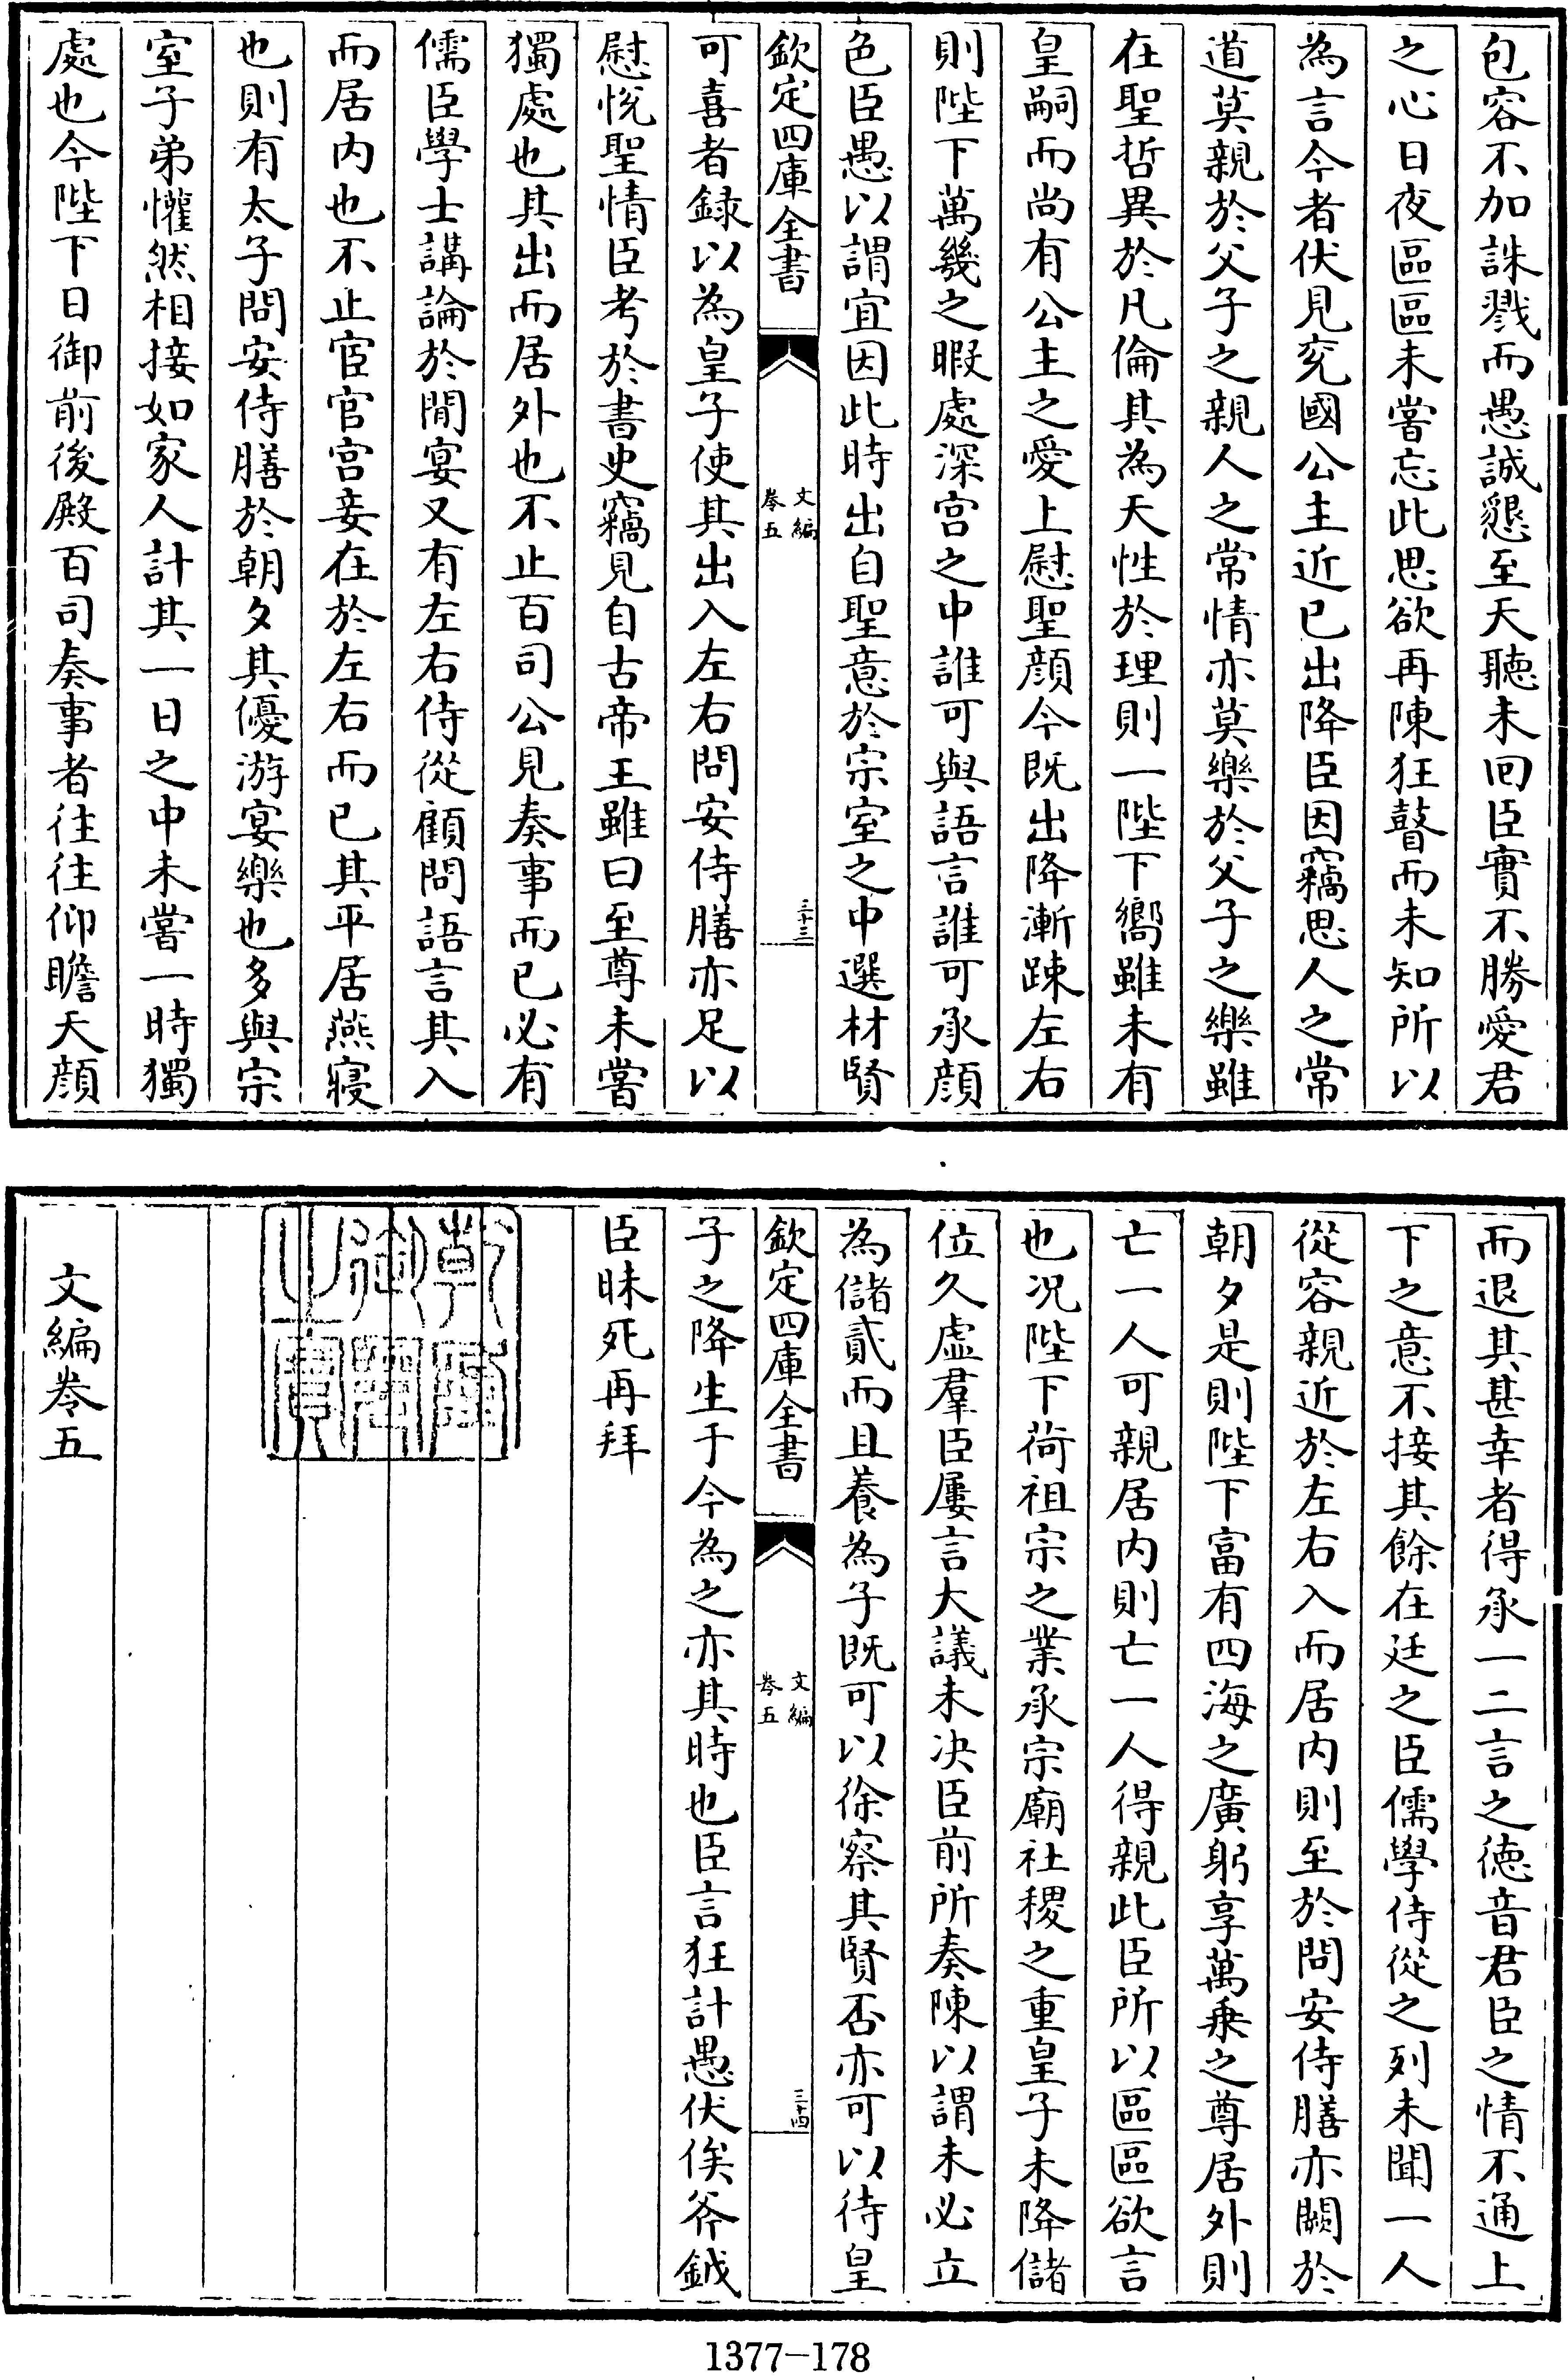 包容不加誅戮而愚誠懇至天聽未回臣實不勝愛君
之心日夜區區未嘗忘此思欲再陳狂瞽而未知所以
為言今者伏見兖國公主近已出降臣因竊思人之常
道莫親於父子之親人之常情亦莫樂於父子之樂雖
在聖哲異於凡倫其為天性於理則一陛下嚮雖未有
皇嗣而尚有公主之愛上慰聖顔今既出降漸踈左右
則陛下萬幾之暇處深宫之中誰可與語言誰可承顔
色臣愚以謂宜因此時出自聖意於宗室之中選材賢
欽定四庫全書
文編
卷五
三十三
可喜者録以為皇子使其出入左右問安侍膳亦足以
慰悅聖情臣考於書史竊見自古帝王雖曰至尊未嘗
獨處也其出而居外也不止百司公見奏事而已必有
儒臣學士講論於閒宴又有左右侍從顧問語言其入
而居内也不止宦官宫妾在於左右而已其平居燕寢
也則有太子問安侍膳於朝夕其優游宴樂也多與宗
室子弟懽然相接如家人計其一日之中未嘗一時獨
處也今陛下日御前後殿百司奏事者往往仰瞻天顔
而退其甚幸者得承一二言之德音君臣之情不通上
下之意不接其餘在廷之臣儒學侍從之列未聞一人
從容親近於左右入而居内則至於問安侍膳亦闕於
朝夕是則陛下富有四海之廣躬享萬乗之尊居外則
亡一人可親居内則亡一人得親此臣所以區區欲言
也况陛下荷祖宗之業承宗廟社稷之重皇子未降儲
位久虚羣臣屢言大議未决臣前所奏陳以謂未必立
為儲貳而且養為子既可以徐察其賢否亦可以待皇
欽定四庫全書
文編
卷五
三十四
子之降生于今為之亦其時也臣言狂計愚伏俟斧鉞
臣昧死再拜
乾隆御覽之寶
文編卷五
1377-178